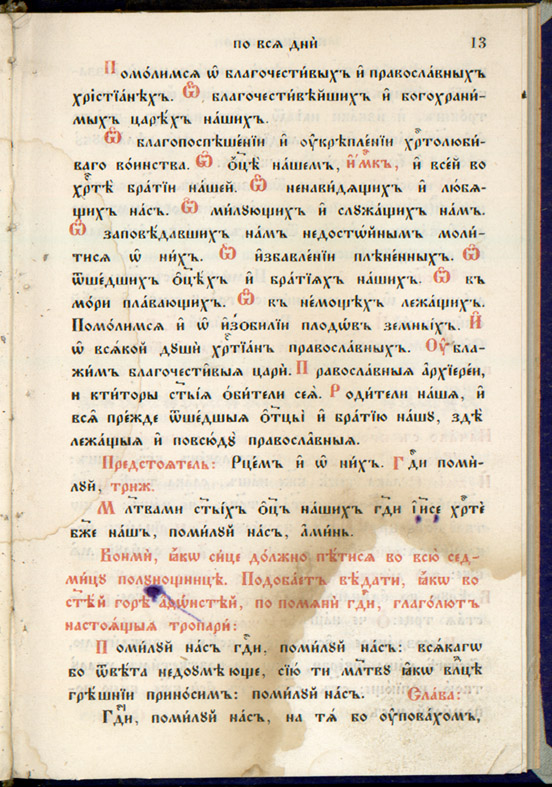 по всѧ̑ дни̑ 13
Помо́лимсѧ ѿ благочести́выхъ и҆ правосла́вныхъ
хрⷭ҇тїа́нѣхъ. Ѿ, благочести́вѣйшихъ и҆ богохрани́-
мыхъ царѣ́хъ на́шихъ.
Ѿ благопоспѣше́нїи и҆ ᲂу҆крѣпле́нїи хрⷭ҇толюби́-
ваго во́инства. Ѿ ѻ҆ц҃ѣ̀ на́шемъ, и҆́мкъ, и҆ все́й во
хрⷭ҇тѣ̀ бра́тїи на́шей. Ѿ ненави́дѧщихъ и҆ лю́бѧ-
щихъ на́съ. Ѿ ми́лующихъ и҆ слꙋжа́щихъ на́мъ.
Ѿ заповѣ́давшихъ на́мъ недосто́йнымъ моли́-
тисѧ ѿ ни́хъ. Ѿ и҆збавле́нїи плѣне́нныхъ. Ѿ
ѿше́дшихъ ѻ҆ц҃ѣ́хъ и҆ бра́тїѧхъ на́шихъ. Ѿ въ
мо́ри пла́вающихъ. Ѿ въ не́мощѣхъ лежа́щихъ.
Помо́лимсѧ и҆ ѿ и҆зоби́лїи плодѡ́въ земны́хъ. И҆
ѿ всѧ́кой дꙋши̑ хрⷭ҇тїа́нъ правосла́вныхъ. Оу҆бла-
жи́мъ благочести́выѧ цари̑. Правосла́вныѧ а҆рхїере́и,
и кти́торы ст҃ы́ѧ ѻ҆би́тели сеѧ̀. Роди́тели на́шѧ, и҆
всѧ̑ пре́жде ѿше́дшыѧ ѻ҆тцы̀ и҆ бра́тїю на́шꙋ, здѣ̀
лежа́щыѧ и҆ повсю́дꙋ правосла́вныѧ.
Предстоѧ́тель: Рце́мъ и҆ ѿ ни́хъ. Гдⷭ҇и поми́-
лꙋй, три́ж.
Млт҃вами ст҃ы́хъ ѻ҆ц҃ъ на́шихъ гдⷭ҇и і҆и҃се хрⷭ҇тѐ
бж҃е на́шъ, поми́лꙋй на́съ, а҆ми́нь.
Вонмѝ, ꙗ҆́кѡ си́це до́лжно пѣ́тисѧ во всю̀ сед-
ми́цꙋ полꙋно́щницѣ. Подоба́етъ вѣ́дати, ꙗ҆́кѡ во
ст҃ѣ́й горѣ̀ а҆ѳѡ́нстѣй, по помѧнѝ гдⷭ҇и, глаго́лютъ
настоѧ́щыѧ тропари̑:
Поми́лꙋй на́съ гдⷭ҇и, поми́лꙋй на́съ: всѧ́кагѡ
во ѿвѣ́та недоꙋмѣ́юще, сїю̀ ти мл҃твꙋ ꙗ҆́кѡ влⷣцѣ
грѣ́шнїи прино́симъ: поми́лꙋй на́съ. Сла́ва:
Гдⷭ҇и, поми́лꙋй на́съ, на тѧ̀ во ᲂу҆пова́хомъ,